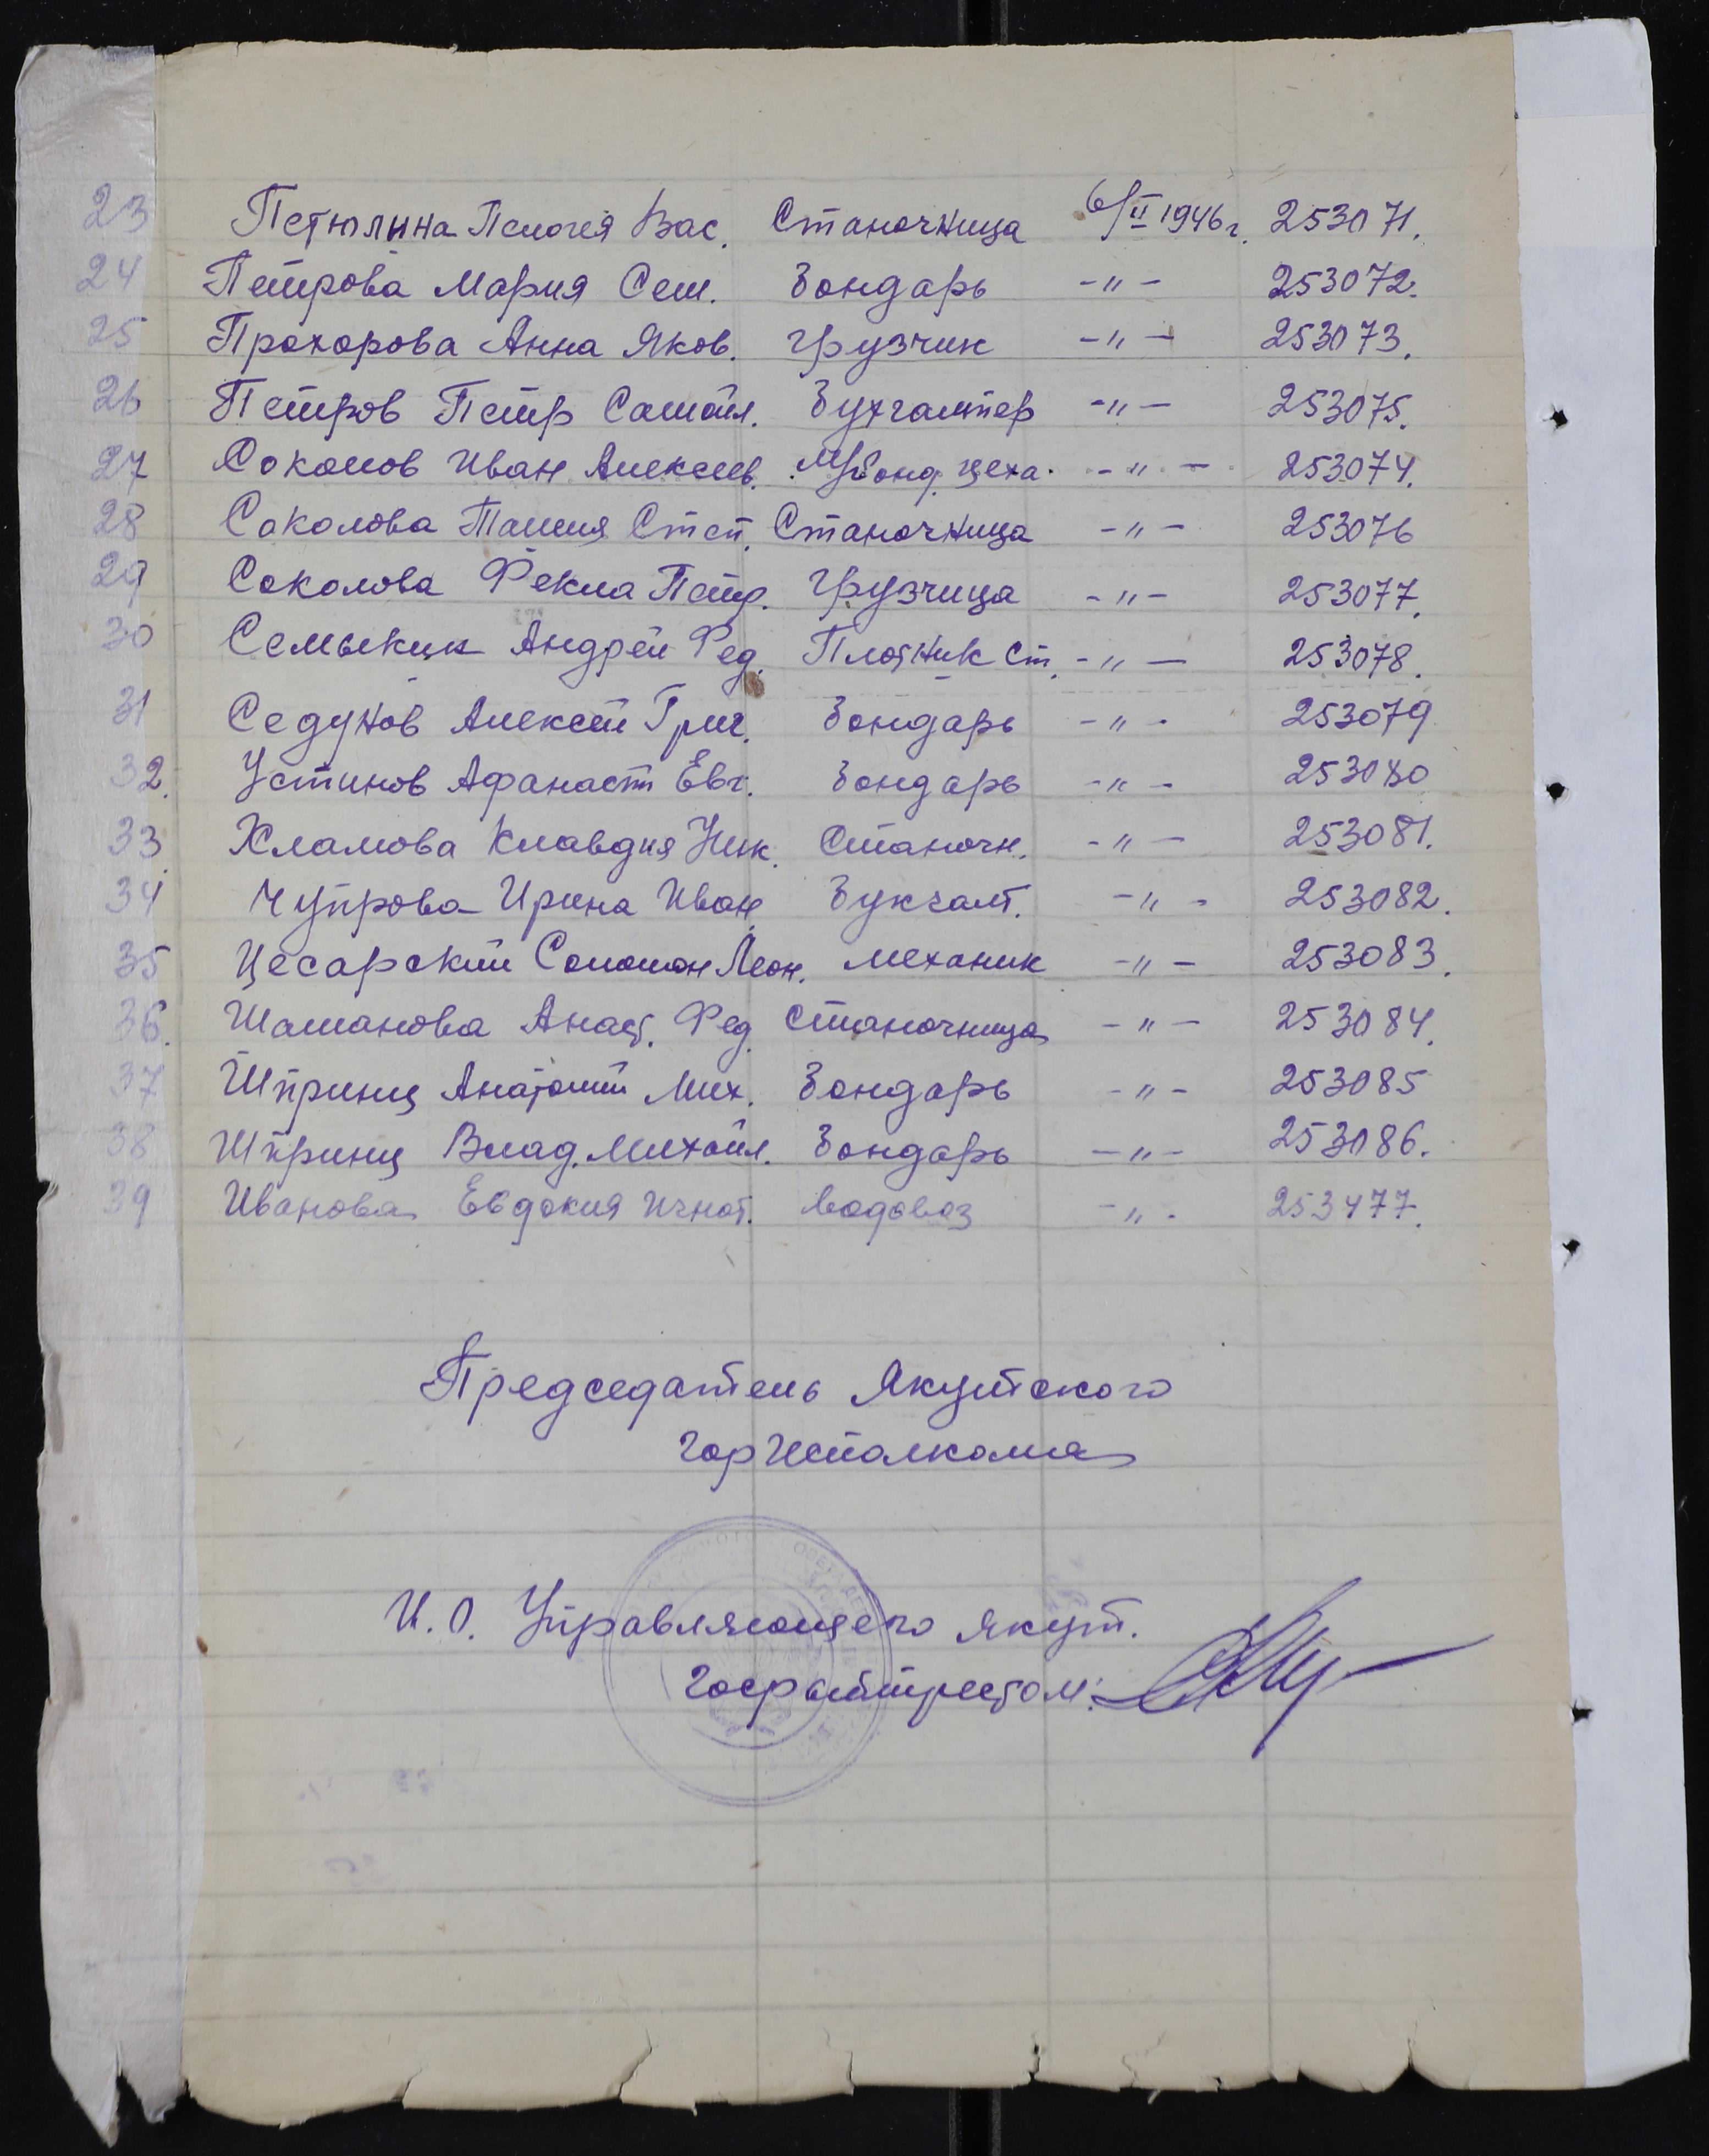 23 Петюлина Пелогея Вас. Станочница 6/II 1946 г. 253071.
24 Петрова Мария Сем. Бондарь -"- 253072.
25 Прохорова Анна Яков. Грузчик -"- 253073.
26 Петров Петр Самойл. Бухгалтер -"- 253075.
27 Соколов Иван Алексеев. бонд. цеха. -"- 253074.
28 Соколова Таисия Степ. Станочница -"- 253076
29 Соколова Фекла Петр. Грузчица -"- 253077.
30 Семыкин Андрей Фед. Плотник ст. -"- 253078.
31 Седунов Алексей Григ. Бондарь -"- 253079
32. Устинов Афанасий Евг. Бондарь -"- 253080
33 Хламова Клавдия Ник. Станочн. -"- 253081.
34 Чупрова Ирина Иван. Букгалт. -"- 253082.
35 Цесарский Соломон Леон. механик -"- 253083.
36. Шаманова Анаст. Фед. Станочница -"- 253084.
37 Шпринц Анатолий Мих. Бондарь -"- 253085
38 Шпринц Влад. Михайл. Бондарь -"- 253086.
39 Иванова Евдокия Игнат. Водовоз -"- 253477.
Председатель Якутского
горисполкома
И.О. Управляющего Якут.
Госрыбтрестом: